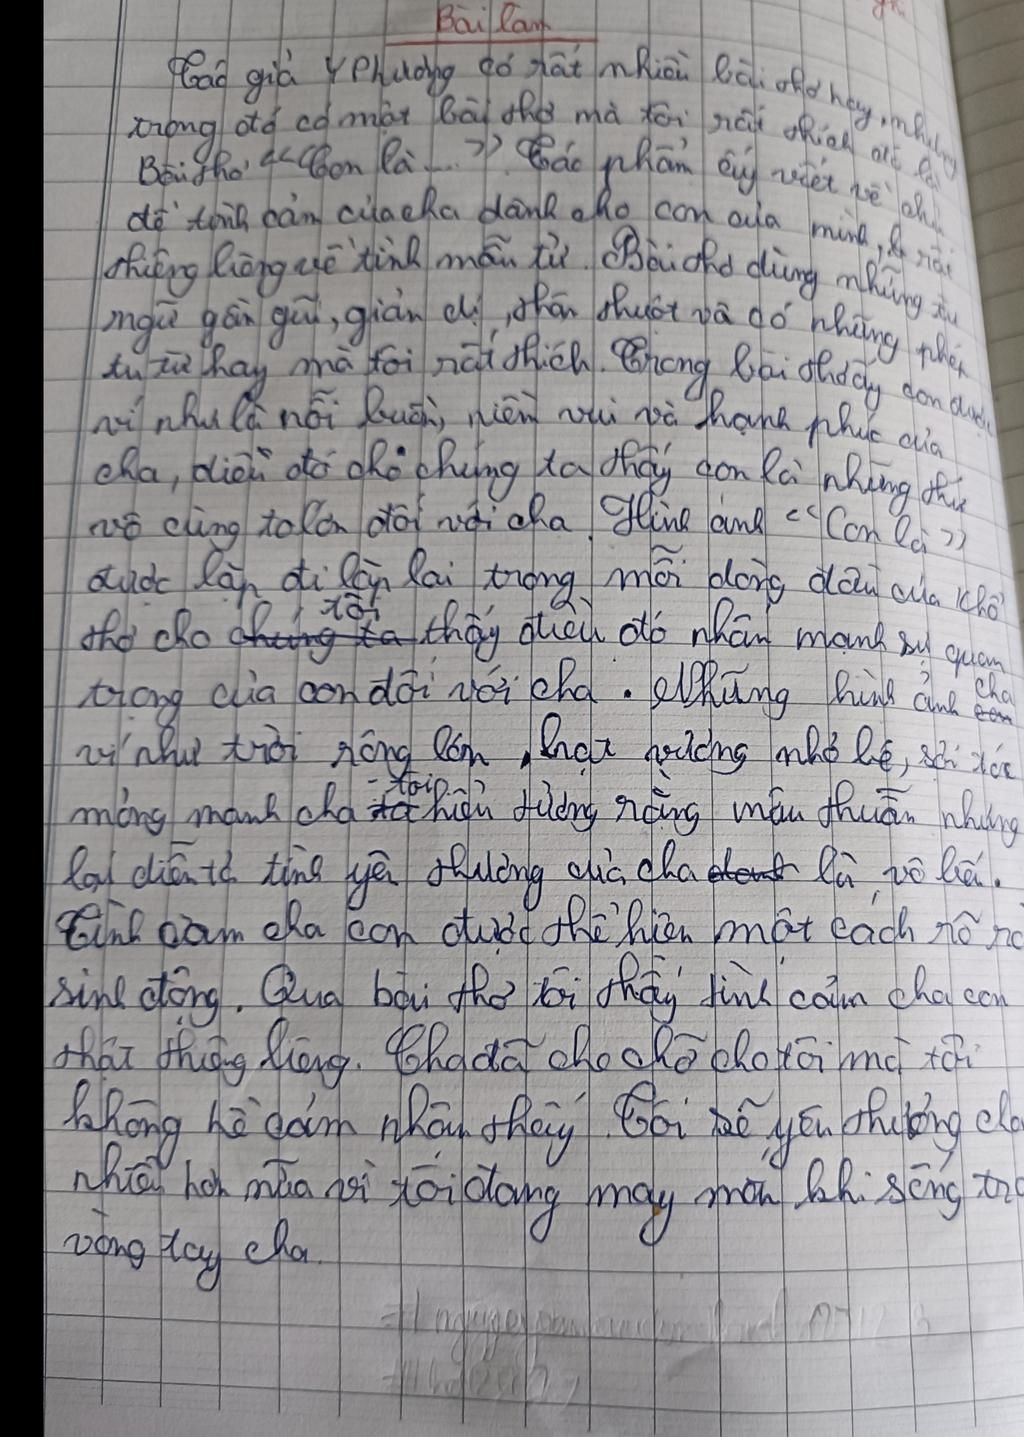 Bài làm
Tác giả Y Phương có rất nhiều bài thơ hay, nhưng
trong đó có một bài thơ mà tôi rất thích đó là
Bài thơ "Con là..." Tác phẩm ấy viết về chủ
đề tình cảm của cha dành cho con của mình, rất
thiêng liêng về tình mẫu tử. Bài thơ dùng những từ
ngữ gần gũi, giản dị, thân thuột và có những phép
tu từ hay mà tôi rất thích. Trong bài thơ ấy con được
ví như là nỗi buồn, niềm vui và hạnh phúc của
cha, điều đó cho chúng ta thấy con là những thứ
vô cùng to lớn đối với cha. Hình ảnh "Con là"
được lặp đi lặp lại trong mỗi dòng đầu của khổ
thơ cho tôi thấy điều đó nhấn mạnh sự quan
trọng của con đối với cha. Những hình ảnh cha
ví như trời rộng lớn, hạt vường nhỏ bé, sợi tóc
mỏng manh cha tôi hiện tường rằng mâu thuẫn nhưng
lại diễn tả tình yêu thương của cha là vô bến.
Tình cảm cha con được thể hiện một cách rõ
sinh động. Qua bài thơ tôi thấy tình cảm cha con
thật thiêng liêng. Cha đã che chở cho tôi mà tôi
không hề cảm nhận thấy. Tôi sẽ yêu thương cha
nhiều hơn nữa vì tôi đang may mắn khi sống
vòng tay cha.